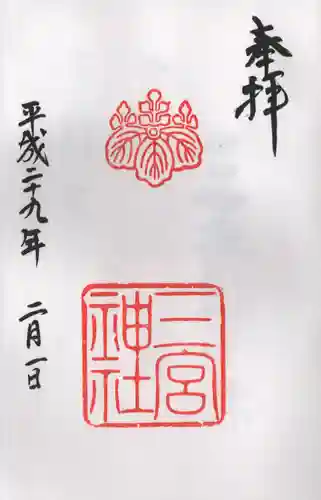 奉拝
三宮
神社
平成二十九年 二月一日